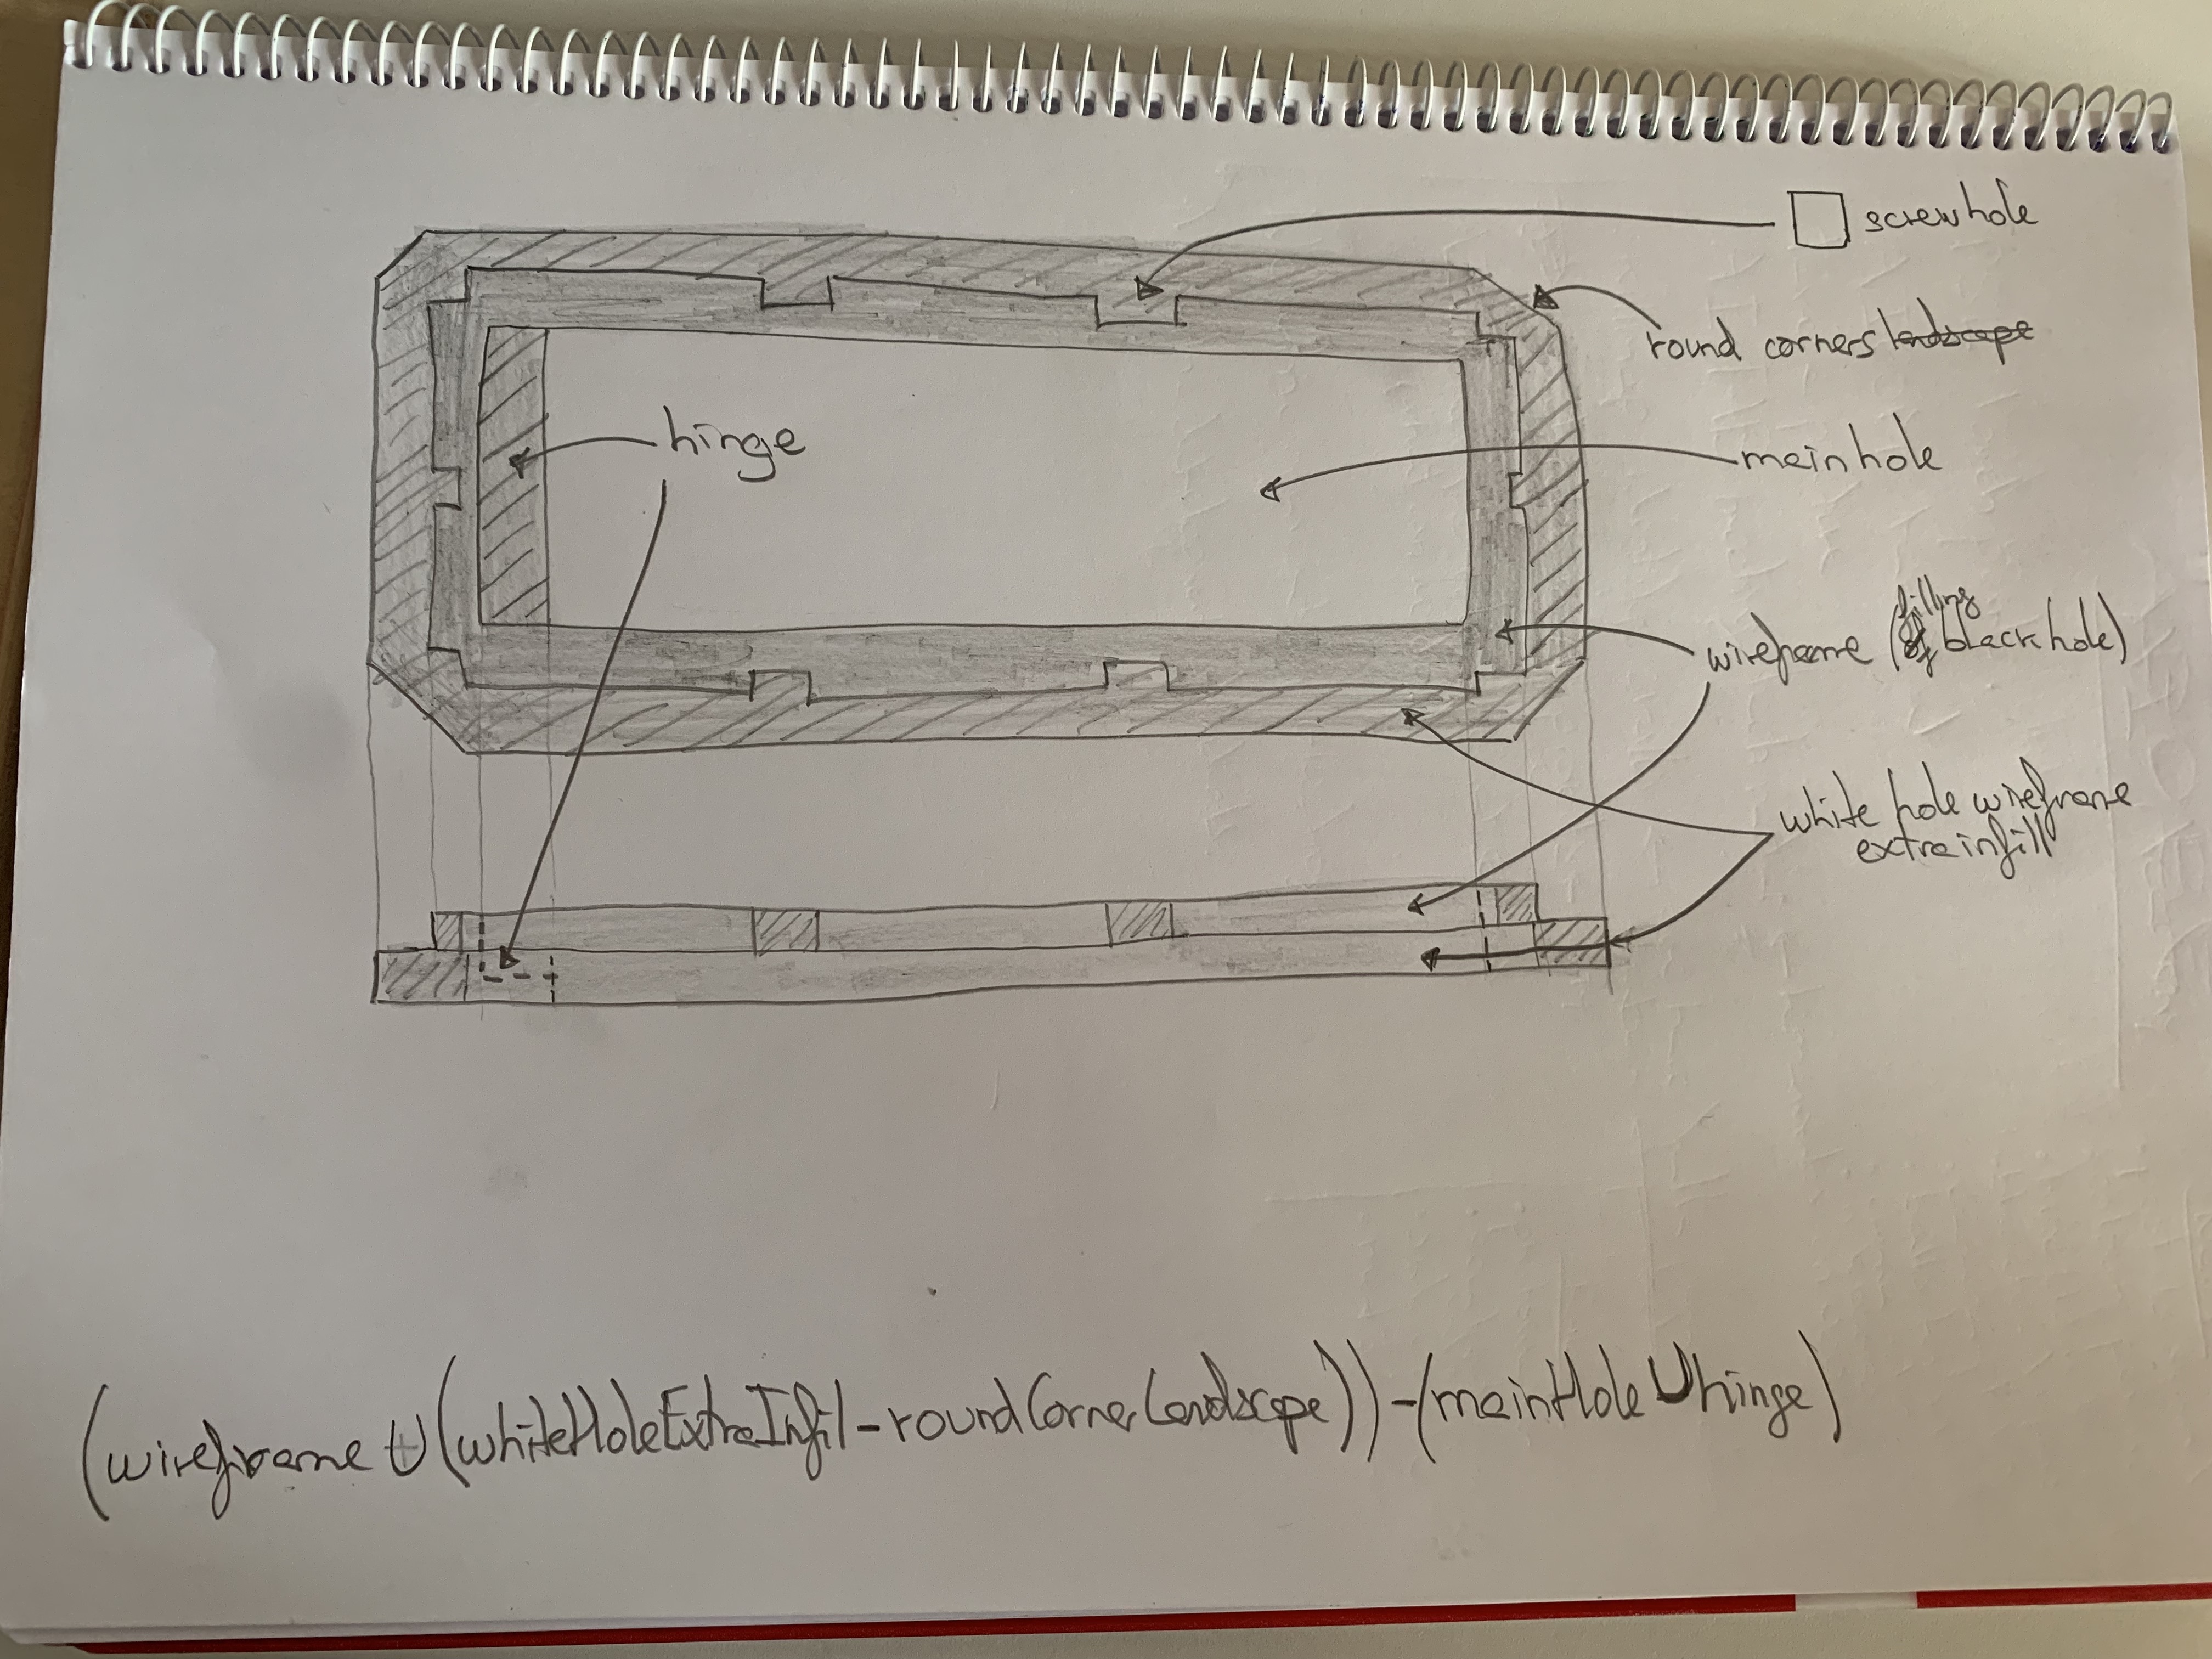 screwhole
round corners landscape
hinge
mainhole
wireframe (filling
of blackhole)
white hole wireframe
extrainfill
(wireframe U (whiteHoleExtraInfil - roundCornerLandscape)) - (mainHole U hinge)